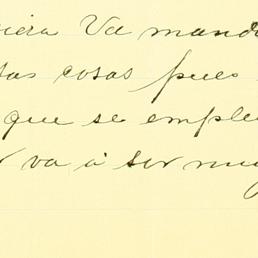 iera Va mand
tas cosas pues
que se emple
va á ser muy